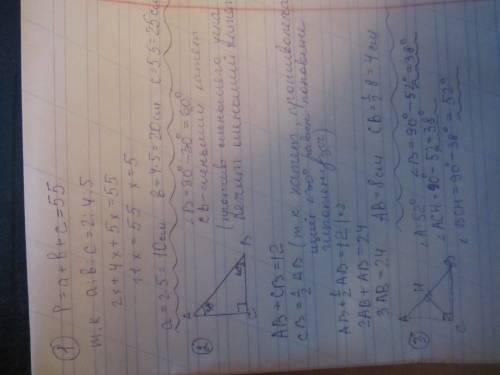 ① P = a + b + c = 55
т.к a:b:c = 2:4:5
2x + 4x + 5x = 55
11x = 55 x = 5
a = 2·5 = 10см b = 4·5 = 20см c = 5·5 = 25см
②
A
B
C
∠B = 90° - 30° = 60°
CB - меньший катет
(против меньшего угла
лежит меньший катет
AB + CB = 12
CB = ½ AB (т.к катет, противолежа
щий ∠30° равен половине
гипотенузы)
AB + ½ AB = 12 | ×2
2AB + AB = 24
3AB = 24 AB = 8 см CB = ½ · 8 = 4 см
③
A
H
B
C
∠A = 52° ∠B = 90° - 52° = 38°
∠ACH = 90 - 52 = 38°
∠BCH = 90 - 38° = 52°